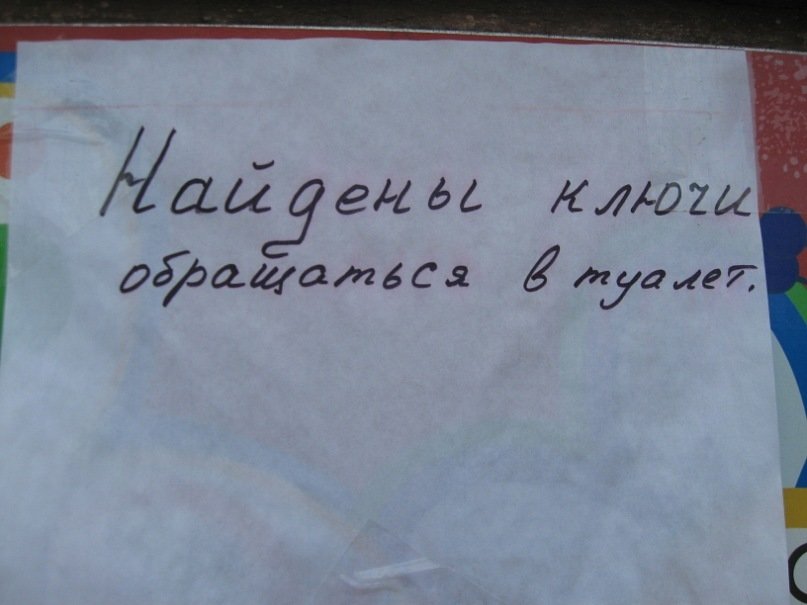 Найдены ключи
обращаться в туалет.